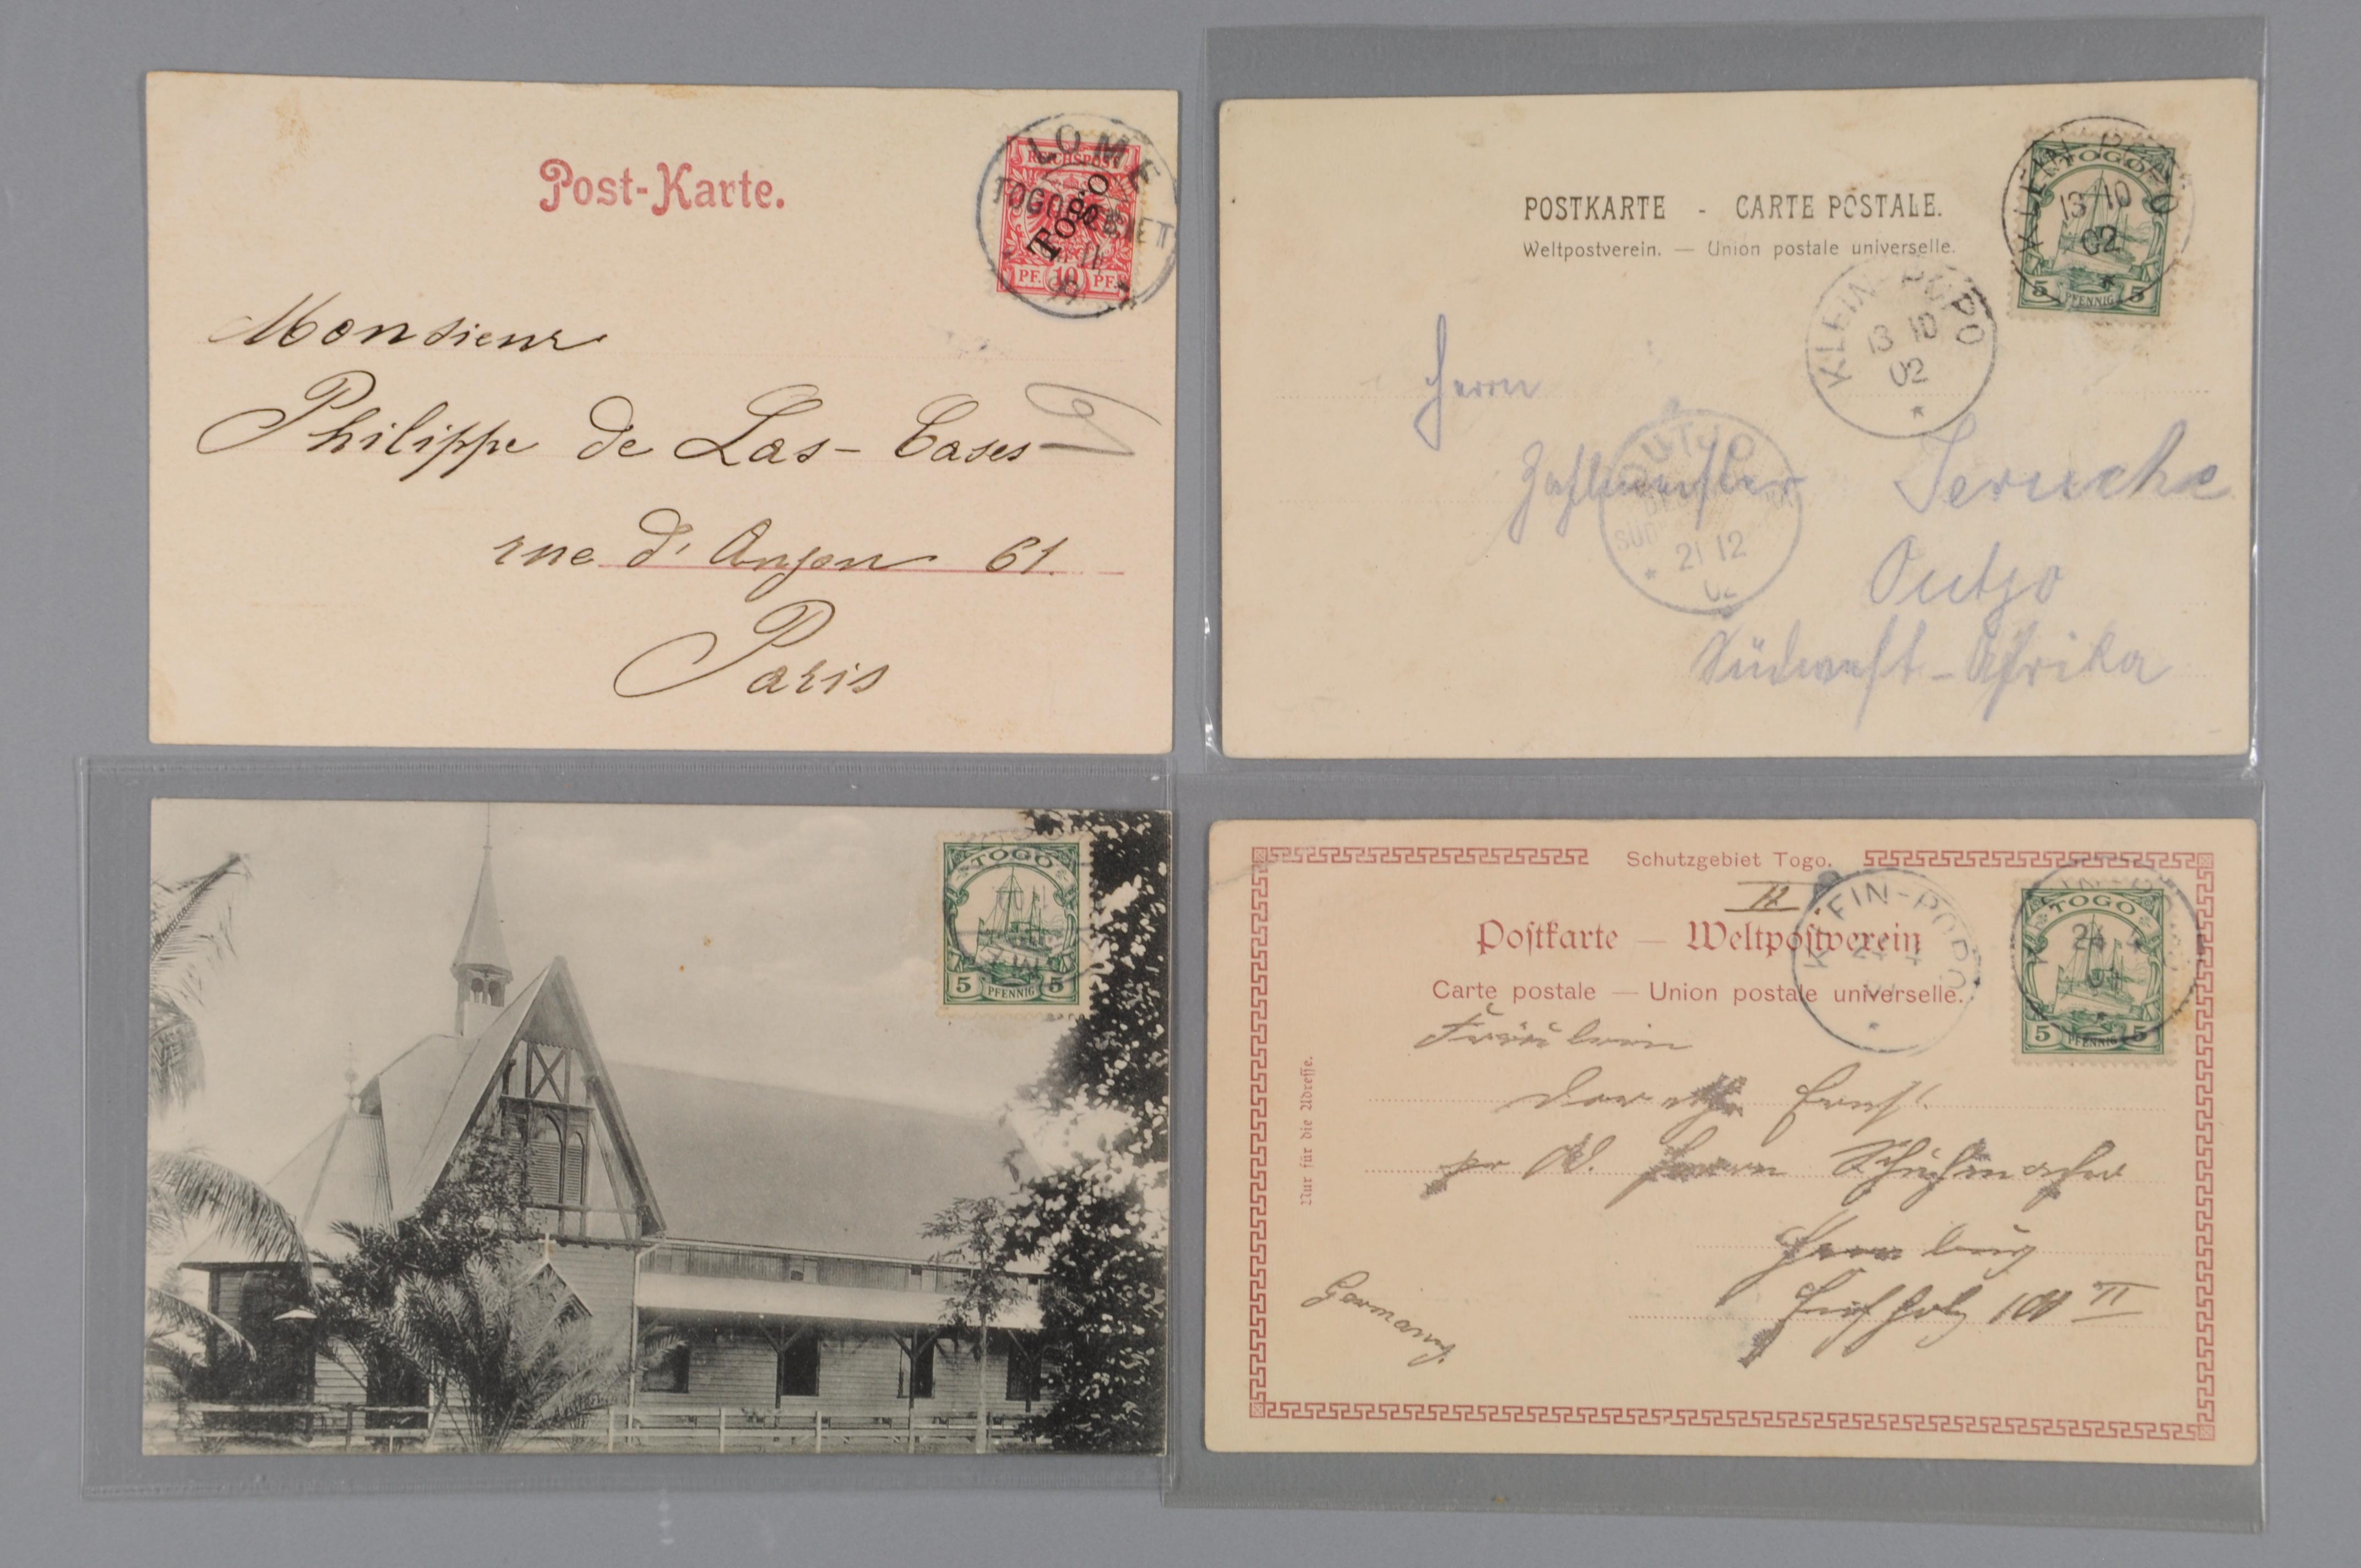 Post-Karte.
LOME
TOGOGEBIET
11
99
REICHSPOST
Togo
PF. 10 PF.
Monsieur
Philippe de Las-Cases
rue d'Anjou 61.
Paris
POSTKARTE - CARTE POSTALE.
Weltpostverein. — Union postale universelle.
KLEIN-POPO
13 10
02
TOGO
5 PFENNIG 5
KLEIN-POPO
13 10
02
Herrn
Zahlmeister Seruche
OUTJO
21 12
02
Outjo
Südwest-Afrika
TOGO
5 PFENNIG 5
Schutzgebiet Togo.
II
Postkarte — Weltpostverein
Carte postale — Union postale universelle.
KLEIN-POPO
KLEIN-POPO
TOGO
5 PFENNIG 5
Nur für die Adresse.
Fräulein
pr Ad. Herrn Schuhmacher
Hamburg
II
Germany.